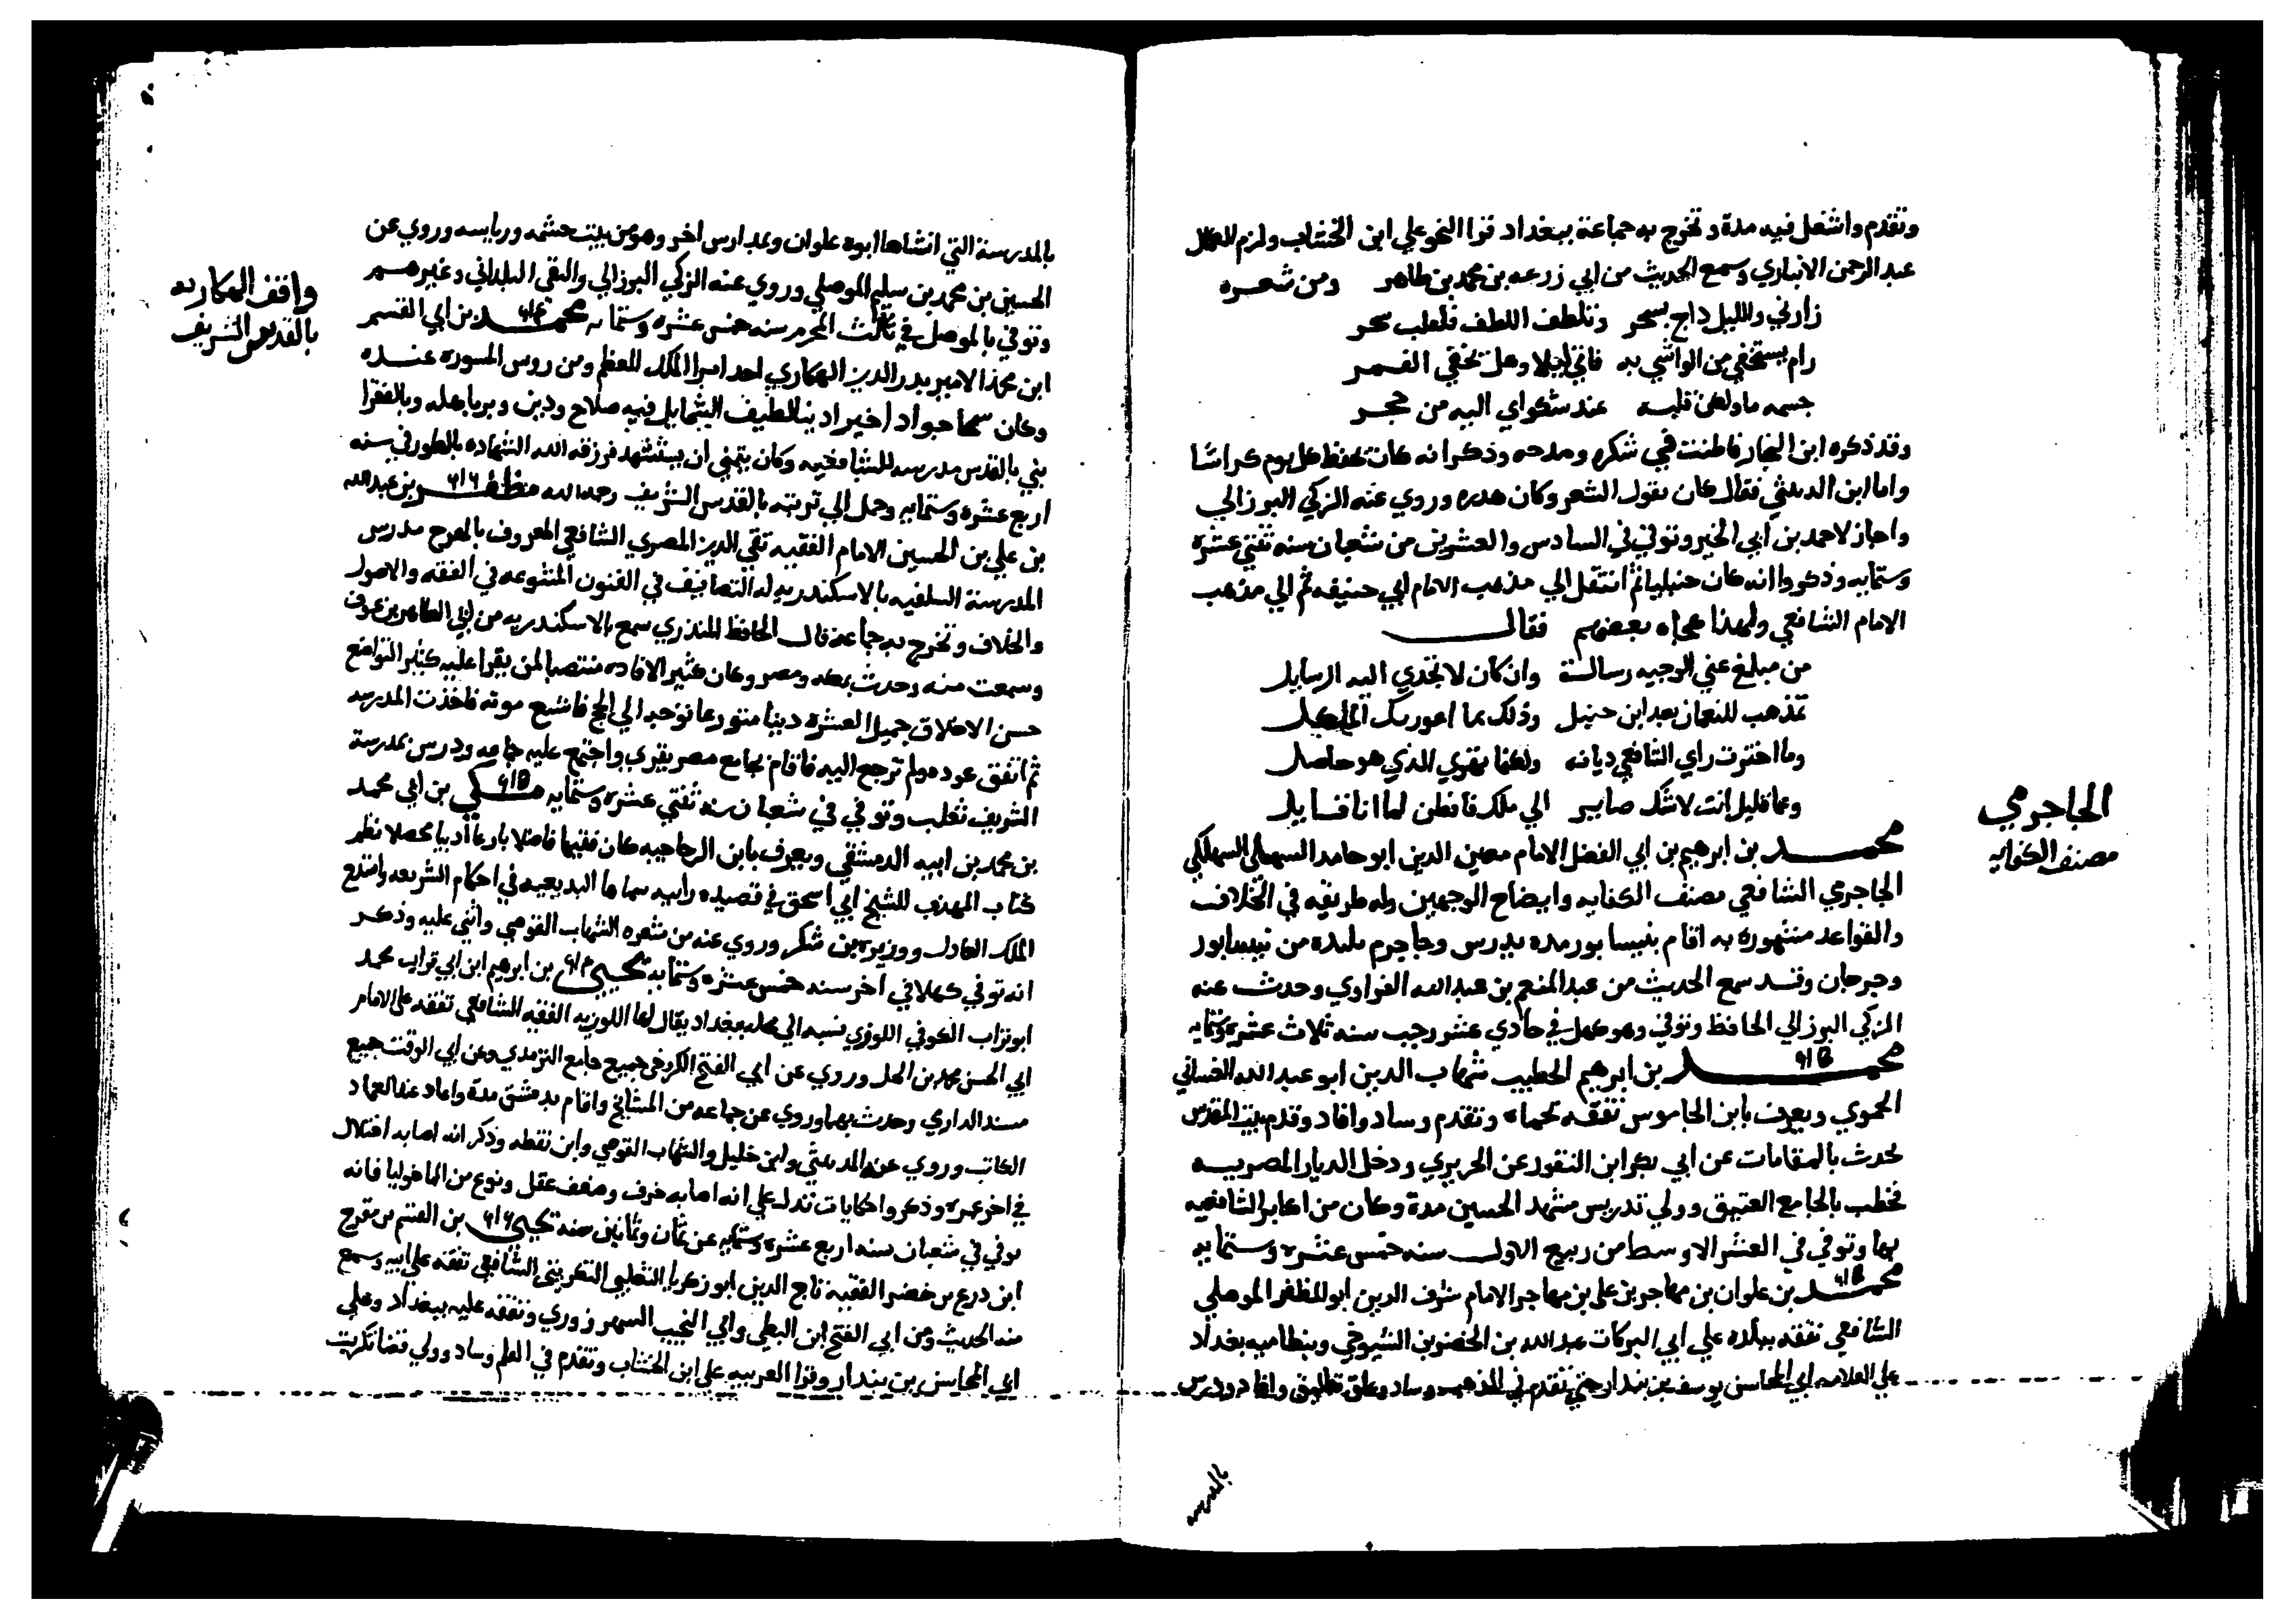 وتقدم واشغل فيه مدة وتخرج به جماعة ببغداد قرا النحو علي ابن الخشاب ولزم الكمال
عبد الرحمن الانباري وسمع الحديث من ابي زرعه بن محمد بن طاهر ومن شعره
زارني والليل داج بسحر وتلطف اللطف فلقلب سحر
رام يستخفي من الواشي به فاتي ليلا وهل يخفي القمر
جسمه ماء ولكن قلبه عند شكواي اليه من حجر
وقد ذكره ابن النجار فاطنب في شكره ومدحه وذكر انه كان يحفظ كل يوم كراسا
واما ابن الدبيثي فقال كان يقول الشعر وكان هدره وروي عنه الزكي البرزالي
واجاز لاحمد بن ابي الخير وتوفي في السادس والعشرين من شعبان سنه ثنتي عشره
وستمايه وذكروا انه كان حنبليا ثم انتقل الي مذهب الامام ابي حنيفه ثم الي مذهب
الامام الشافعي ولهذا هجاه بعضهم فقال
من مبلغ عني الوجيه رسالة وان كان لا تجدي اليه الرسايل
تمذهب للنعمان بعد ابن حنبل وذلك بما اعوزتك الماكل
وما اخترت راي الشافعي ديانه ولكنما تهوي الذي هو حاصل
وعما قليل انت لا شك صاير الي ملك فافطن لما انا قايل
محمد بن ابرهيم بن ابي الفضل الامام معين الدين ابو حامد السهلي السهلكي
الجاجرمي الشافعي مصنف الكفايه وايضاح الوجهين وله طريقه في الخلاف
والقواعد مشهوره به اقام بنيسابور مدة يدرس وجاجرم بلدة من نيسابور
وجرجان وقد سمع الحديث من عبد المنعم بن عبد الله الفراوي وحدث عنه
الزكي البرزالي الحافظ وتوفي وهو كهل في حادي عشر رجب سنه ثلاث عشره وستمايه
محمد بن ابرهيم الخطيب شهاب الدين ابو عبد الله الغساني
الحموي ويعرف بابن الجاموس تفقه بحماه وتقدم وساد وافاد وقدم بيت المقدس
يحدث بالمقامات عن ابي بكر ابن النقور عن الحريري ودخل الديار المصريه
فخطب بالجامع العتيق وولي تدريس مشهد الحسين مدة وكان من اكابر الشافعيه
بها وتوفي في العشر الاوسط من ربيع الاول سنه خمس عشره وستمايه
محمد بن علوان بن مهاجر بن علي بن مهاجر الامام شرف الدين ابو المظفر الموصلي
الشافعي تفقه ببلده علي ابي البركات عبد الله بن الخضر بن الشيرجي وبنظاميه بغداد
علي العلامه ابي المحاسن يوسف بن بندار حتي تقدم في المذهب وساد وعلق تعليق وافاد ودرس
بالمدرسه
الجاجرمي
مصنف الكفايه
بالمدرسة التي انشاها ابوه علوان وبمدارس اخر وهو من بيت حشمه ورياسه وروي عن
الحسين بن محمد بن سليم الموصلي وروي عنه الزكي البرزالي والتقي اليلداني وغيرهم
وتوفي بالموصل في ثالث المحرم سنه خمس عشره وستمايه محمد بن ابي القسم
ابن محمد الامير بدر الدين الهكاري احد امرا الملك المعظم ومن روس المسوره عنده
وكان سمحا جوادا خيرا دينا لطيف الشمايل فيه صلاح ودين وبر باهله وبالفقرا
بني بالقدس مدرسه للشافعيه وكان يتمني ان يستشهد فرزقه الله الشهاده بالطور في سنه
اربع عشره وستمايه وحمل الي تربته بالقدس الشريف رحمه الله مظفر بن عبد الله
بن علي بن الحسين الامام الفقيه تقي الدين المصري الشافعي المعروف بالمقترح مدرس
المدرسة السلفيه بالاسكندريه له التصانيف في الفنون المتنوعه في الفقه والاصول
والخلاف وتخرج به جماعه قال الحافظ المنذري سمع بالاسكندريه من ابي الطاهر بن عوف
وسمعت منه وحدث بمكه ومصر وكان كثير الافاده منتصبا لمن يقرا عليه كثير التواضع
حسن الاخلاق جميل العشره دينا متورعا توجه الي الحج فاشيع موته فاخذت المدرسه
ثم اتفق عوده ولم ترجع اليه فاقام بجامع مصر يقري واجتمع عليه جماعه ودرس بمدرسة
الشريف ثعلب وتوفي في شعبان سنه ثنتي عشره وستمايه مكي بن ابي محمد
بن محمد بن ابيه الدمشقي ويعرف بابن الدجاجيه كان فقيها فاضلا بارعا اديبا محصلا نظم
كتاب المهذب للشيخ ابي اسحق في قصيده راييه سماها البديعيه في احكام الشريعه وامتدح
الملك العادل ووزيره بن شكر وروي عنه من شعره الشهاب القوصي واثني عليه وذكر
انه توفي كهلا في اخر سنه خمس عشره وستمايه يحيي بن ابرهيم ابن ابي تراب محمد
ابو تراب الكوفي اللوزي نسبه الي محله ببغداد يقال لها اللوزيه الفقيه الشافعي تفقه علي الامام
ابي الحسن محمد بن الخل وروي عن ابي الفتح الكروخي جميع جامع الترمذي وعن ابي الوقت جميع
مسند الداري وحدث بهما وروي عن جماعه من المشايخ واقام بدمشق مدة واعاد عند العماد
الكاتب وروي عنه الدبيثي وابن خليل والشهاب القوصي وابن نقطه وذكر انه اصابه اختلال
في اخر عمره وذكروا حكايات تدل علي انه اصابه خرف وضعف عقل ونوع من الماخوليا فانه
توفي في شعبان سنه اربع عشره وستمايه عن ثمان وثمانين سنه يحيي بن القسم بن مفرج
ابن درع بن خضر الفقيه تاج الدين ابو زكريا الثعلبي التكريتي الشافعي تفقه علي ابيه وسمع
منه الحديث ومن ابي الفتح ابن البطي وابي النجيب السهروردي وتفقه عليه ببغداد وعلي
ابي المحاسن بن بندار وقرا العربيه علي ابن الخشاب وتقدم في العلم وساد وولي قضا تكريت
واقف الهكاريه
بالقدس الشريف